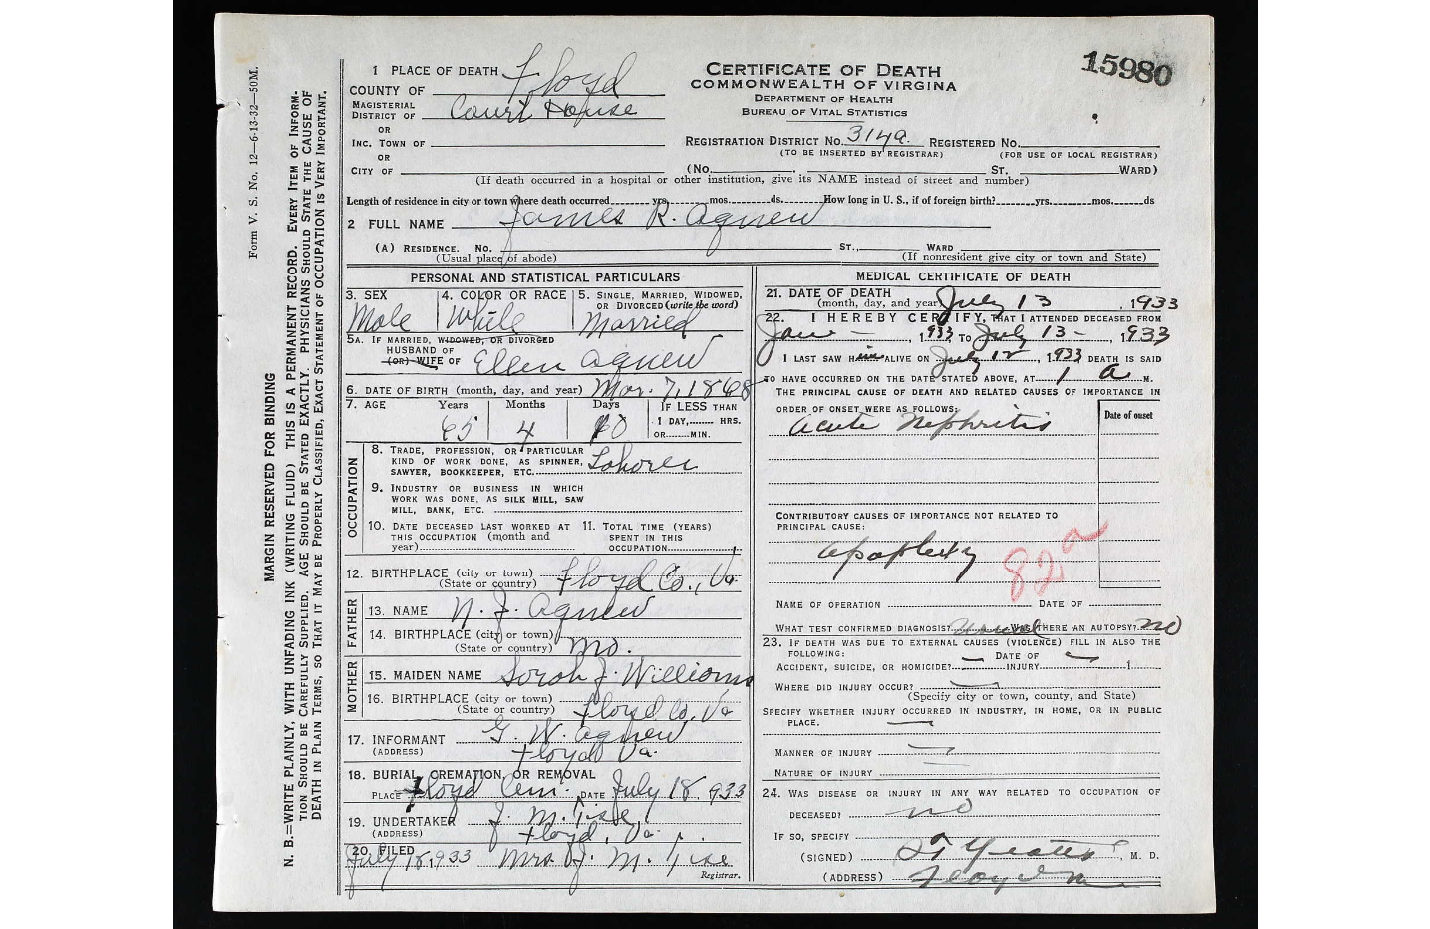 15980
Form V. S. No. 12—6-13-32—50M.
MARGIN RESERVED FOR BINDING
N. B.=WRITE PLAINLY, WITH UNFADING INK (WRITING FLUID) THIS IS A PERMANENT RECORD. EVERY ITEM OF INFORM-
TION SHOULD BE CAREFULLY SUPPLIED. AGE SHOULD BE STATED EXACTLY. PHYSICIANS SHOULD STATE THE CAUSE OF
DEATH IN PLAIN TERMS, SO THAT IT MAY BE PROPERLY CLASSIFIED, EXACT STATEMENT OF OCCUPATION IS VERY IMPORTANT.
CERTIFICATE OF DEATH
COMMONWEALTH OF VIRGINIA
DEPARTMENT OF HEALTH
BUREAU OF VITAL STATISTICS
1 PLACE OF DEATH
COUNTY OF Floyd
MAGISTERIAL
DISTRICT OF Court House
OR
INC. TOWN OF
OR
CITY OF
REGISTRATION DISTRICT No. 314a. REGISTERED No.
(TO BE INSERTED BY REGISTRAR) (FOR USE OF LOCAL REGISTRAR)
(No. ST. WARD)
(If death occurred in a hospital or other institution, give its NAME instead of street and number)
Length of residence in city or town where death occurred yrs. mos. ds. How long in U. S., if of foreign birth? yrs. mos. ds
2 FULL NAME James R. Agnew
(A) RESIDENCE. No. ST., WARD
(Usual place of abode) (If nonresident give city or town and State)
PERSONAL AND STATISTICAL PARTICULARS
3. SEX
Male
4. COLOR OR RACE
White
5. SINGLE, MARRIED, WIDOWED,
OR DIVORCED (write the word)
Married
5A. IF MARRIED, WIDOWED, OR DIVORCED
HUSBAND OF
(OR) WIFE OF Ellen Agnew
6. DATE OF BIRTH (month, day, and year) Mar. 7, 1868
7. AGE Years Months Days IF LESS THAN
1 DAY, HRS.
OR MIN.
65 4
OCCUPATION
8. TRADE, PROFESSION, OR PARTICULAR
KIND OF WORK DONE, AS SPINNER,
SAWYER, BOOKKEEPER, ETC. Laborer
9. INDUSTRY OR BUSINESS IN WHICH
WORK WAS DONE, AS SILK MILL, SAW
MILL, BANK, ETC.
10. DATE DECEASED LAST WORKED AT
THIS OCCUPATION (month and
year)
11. TOTAL TIME (YEARS)
SPENT IN THIS
OCCUPATION
12. BIRTHPLACE (city or town)
(State or country) Floyd Co., Va.
FATHER
13. NAME N. J. Agnew
14. BIRTHPLACE (city or town)
(State or country) Mo.
MOTHER
15. MAIDEN NAME Sarah J. Williams
16. BIRTHPLACE (city or town)
(State or country) Floyd Co, Va
17. INFORMANT G. W. Agnew
(ADDRESS) Floyd Va.
18. BURIAL, CREMATION, OR REMOVAL
PLACE Floyd Cem. DATE July 18, 933
19. UNDERTAKER J. M. Tise
(ADDRESS) Floyd, Va.
20. FILED
July 18, 1933 Mrs. J. M. Tise
Registrar.
MEDICAL CERTIFICATE OF DEATH
21. DATE OF DEATH
(month, day, and year) July 13, 1933
22. I HEREBY CERTIFY, THAT I ATTENDED DECEASED FROM
Jan —, 1933 TO July 13 -, 1933
I LAST SAW HIM ALIVE ON July 12, 1933 DEATH IS SAID
TO HAVE OCCURRED ON THE DATE STATED ABOVE, AT 1 A M.
THE PRINCIPAL CAUSE OF DEATH AND RELATED CAUSES OF IMPORTANCE IN
ORDER OF ONSET WERE AS FOLLOWS:
Date of onset
Acute Nephritis
CONTRIBUTORY CAUSES OF IMPORTANCE NOT RELATED TO
PRINCIPAL CAUSE:
Apoplexy
82a
NAME OF OPERATION DATE OF
WHAT TEST CONFIRMED DIAGNOSIS? WAS THERE AN AUTOPSY? no
23. IF DEATH WAS DUE TO EXTERNAL CAUSES (VIOLENCE) FILL IN ALSO THE
FOLLOWING:
ACCIDENT, SUICIDE, OR HOMICIDE? — DATE OF INJURY — 1
WHERE DID INJURY OCCUR? —
(Specify city or town, county, and State)
SPECIFY WHETHER INJURY OCCURRED IN INDUSTRY, IN HOME, OR IN PUBLIC
PLACE. —
MANNER OF INJURY —
NATURE OF INJURY —
24. WAS DISEASE OR INJURY IN ANY WAY RELATED TO OCCUPATION OF
DECEASED? no
IF SO, SPECIFY
(SIGNED) Yeatts, M. D.
(ADDRESS) Floyd Va